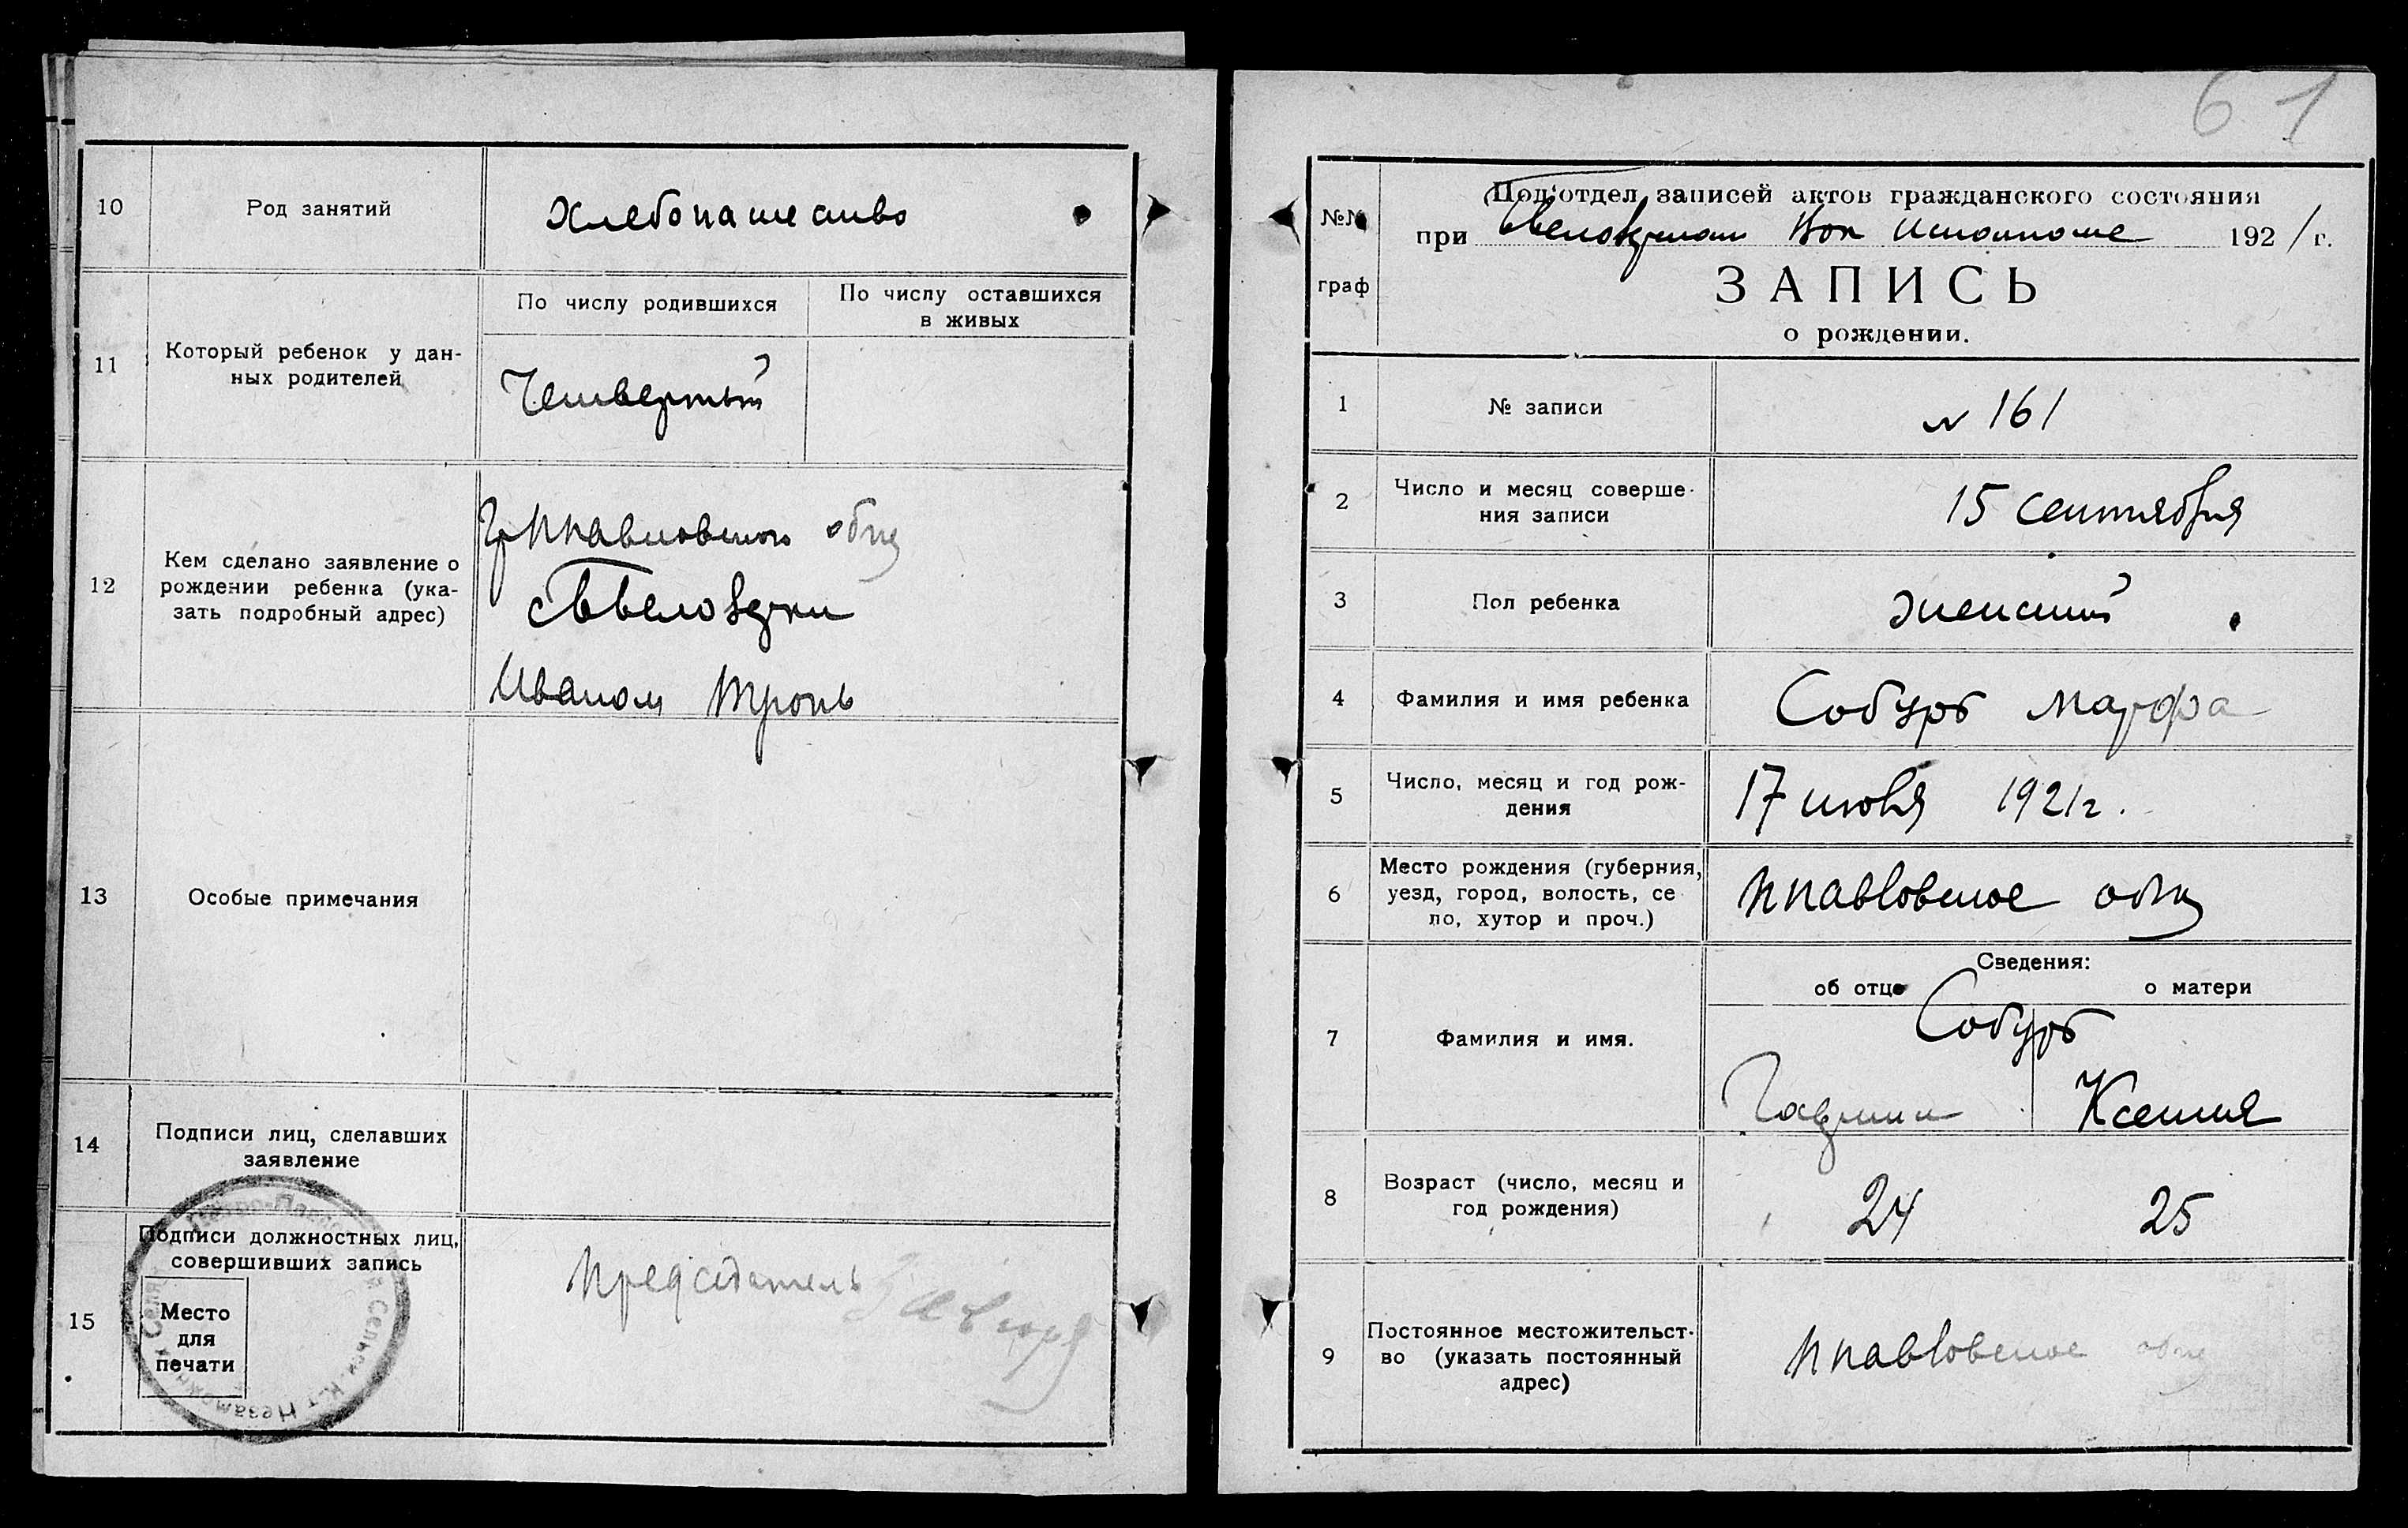 10
Род занятий
Хлебопашество
11
Который ребенок у дан-
ных родителей
По числу родившихся
По числу оставшихся
в живых
Четвертый
12
Кем сделано заявление о
рождении ребенка (ука-
зать подробный адрес)
Гр Ппавловского общ
Иваном Тронь
13
Особые примечания
14
Подписи лиц, сделавших
заявление
15
Подписи должностных лиц,
совершивших запись
Место
для
печати
Председатель
61
№№
граф
Под'отдел записей актов гражданского состояния
при Вол 1921 г.
ЗАПИСЬ
о рождении.
1
№ записи
N 161
2
Число и месяц соверше-
ния записи
15 сентября
3
Пол ребенка
женский
4
Фамилия и имя ребенка
Собурь Марфа
5
Число, месяц и год рож-
дения
17 1921 г.
6
Место рождения (губерния,
уезд, город, волость, се
ло, хутор и проч.)
Ппавловское общ
Сведения:
об отце
о матери
7
Фамилия и имя.
Собурь
Ксения
8
Возраст (число, месяц и
год рождения)
24
25
9
Постоянное местожительст-
во (указать постоянный
адрес)
Ппавловское общ